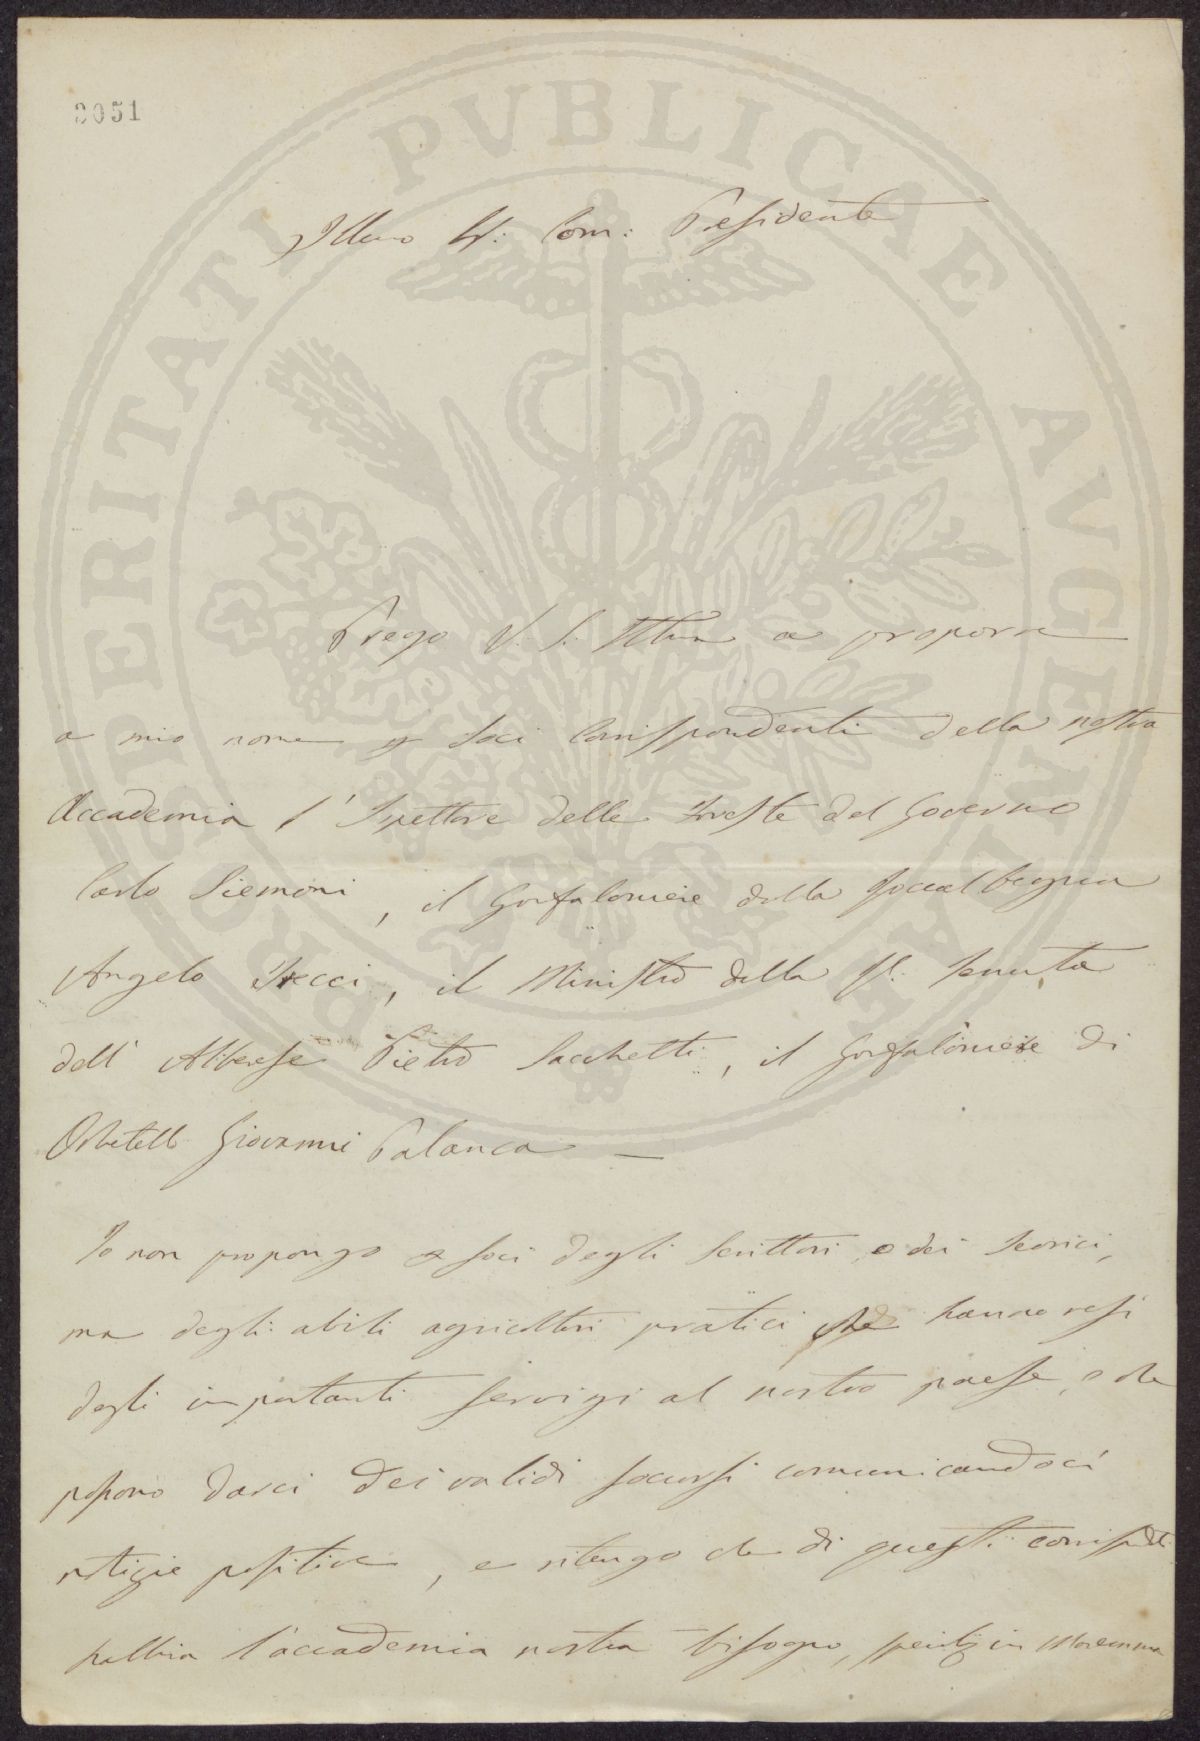 3051
PROSPERITATI PVBLICAE AVGENDAE
Illmo Sig: Com: Presidente
Prego V. S. Illma a proporre
a mio nome a Soci Corrispondenti della nostra
Accademia l'Ispettore delle foreste del Governo
Carlo Siemoni, il Gonfaloniere della Roccalbegna
Angelo Becci, il Ministro della R. Tenuta
dell'Alberese Pietro Sacchetti, il Gonfaloniere di
Orbetello Giovanni Palanca —
Io non propongo a soci degli scrittori, o dei teorici,
ma degli abili agricoltori pratici che hanno resi
degli importanti servigi al nostro paese, e che
possono darci dei validi soccorsi comunicandoci
notizie positive, e ritengo che di questi
l'accademia nostra bisogno, in Maremma